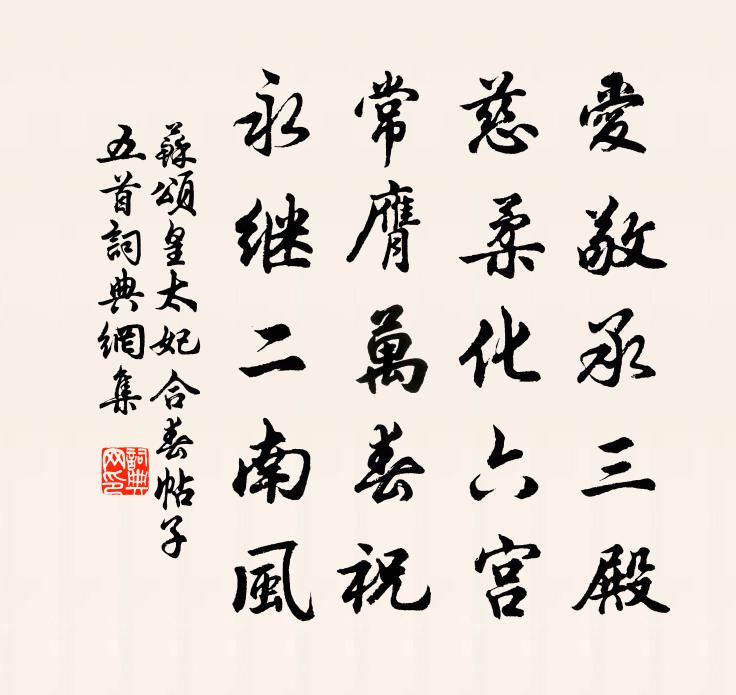 愛敬承三殿
慈柔化六宮
常膺萬春祝
永继二南風
蘇頌皇太妃合春帖子
五首詞典網集
詞典网印